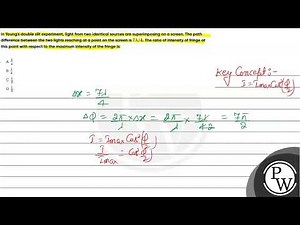 In Young's double slit experiment, light from two identical sources are superimposing on a screen. The path
difference between the two lights reaching at a point on the screen is 7λ/4. The ratio of intensity of fringe at
this point with respect to the maximum intensity of the fringe is:
Key Concept :-
I = Imax Cos²(φ/2)
Δx = 7λ/4
Δφ = 2π/λ × Δx = 2π/λ × 7λ/4·2 = 7π/2
I = Imax Cos²(φ/2)
I/Imax = Cos²(φ/2)
PW